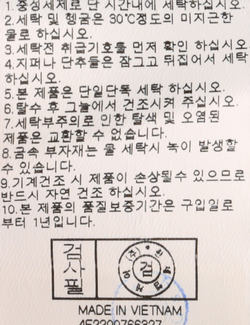 1.중성세제로 단 시간내에 세탁하십시오.
2.세탁 및 헹굼은 30℃정도의 미지근한
물로 하십시오.
3.세탁전 취급기호를 먼저 확인 하십시오
4.지퍼나 단추들은 잠그고 뒤집어서 세탁
하십시오.
5.본 제품은 단일단독 세탁 하십시오.
6.탈수 후 그늘에서 건조시켜 주십시오.
7.세탁부주의로 인한 탈색 및 오염된
제품은 교환할 수 없습니다.
8.금속 부자재는 물 세탁시 녹이 발생할
수 있습니다.
9.기계건조 시 제품이 손상될수 있으므로
반드시 자연 건조 하십시오.
10.본 제품의 품질보증기간은 구입일로
부터 1년입니다.
검사필
검
MADE IN VIETNAM